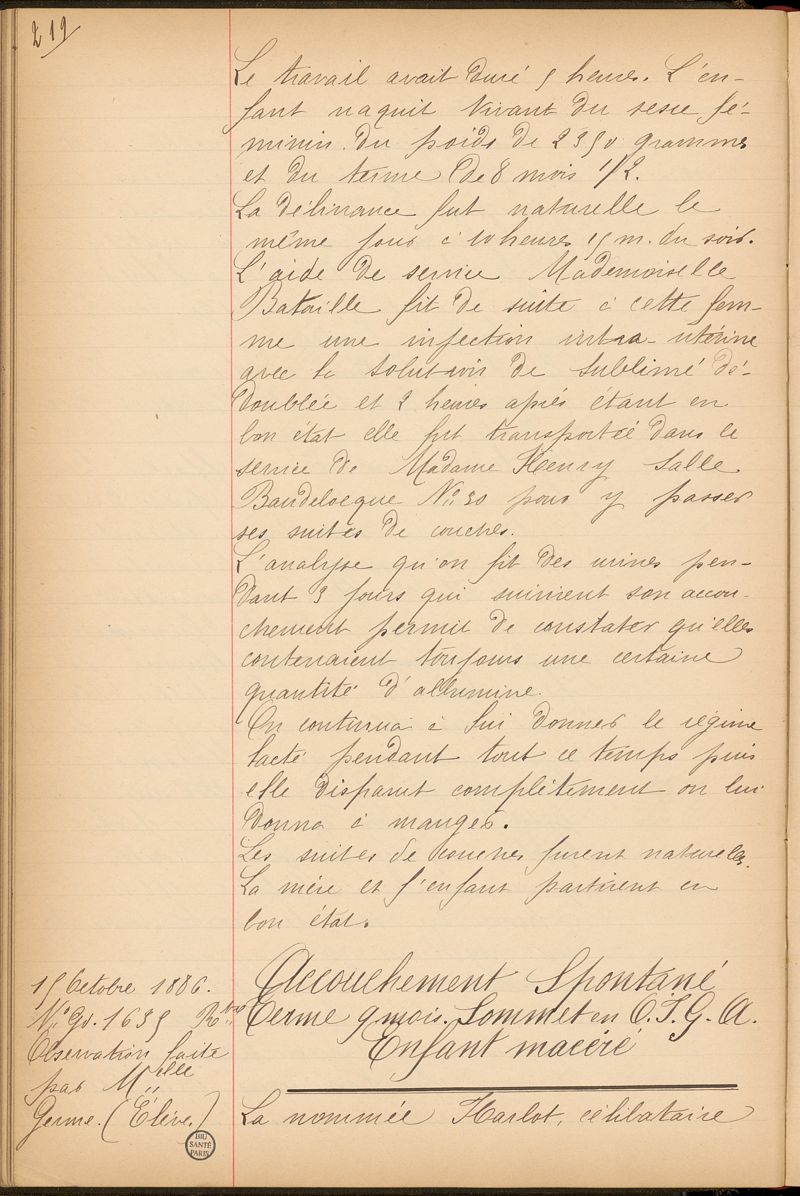 219
Le travail avait duré 5 heures. L'en-
fant naquit vivant du sexe fé-
minin du poids de 2350 grammes
et du terme de 8 mois 1/2.
La délivrance fut naturelle le
même jour à 10 heures 15 m. du soir.
L'aide de service Mademoiselle
Bataille fit de suite à cette fem-
me une injection intra-utérine
avec la solution de sublimé dé-
doublée et 2 heures après étant en
bon état elle fut transportée dans le
service de Madame Henry Salle
Baudelocque No 30 pour y passer
ses suites de couches.
L'analyse qu'on fit des urines pen-
dant 3 jours qui suivirent son accou-
chement permit de constater qu'elles
contenaient toujours une certaine
quantité d'albumine.
On continua à lui donner le régime
lacté pendant tout ce temps puis
elle disparut complètement on lui
donna à manger.
Les suites de couches furent naturelles.
La mère et l'enfant partirent en
bon état.
15 Octobre 1886.
No Gd. 1635
Observation faite
par Melle
Germe. (Élève.)
Accouchement Spontané
Terme 9 mois. Sommet en O.I.G.A.
Enfant macéré
La nommée Harlot, célibataire
BIU
SANTÉ
PARIS